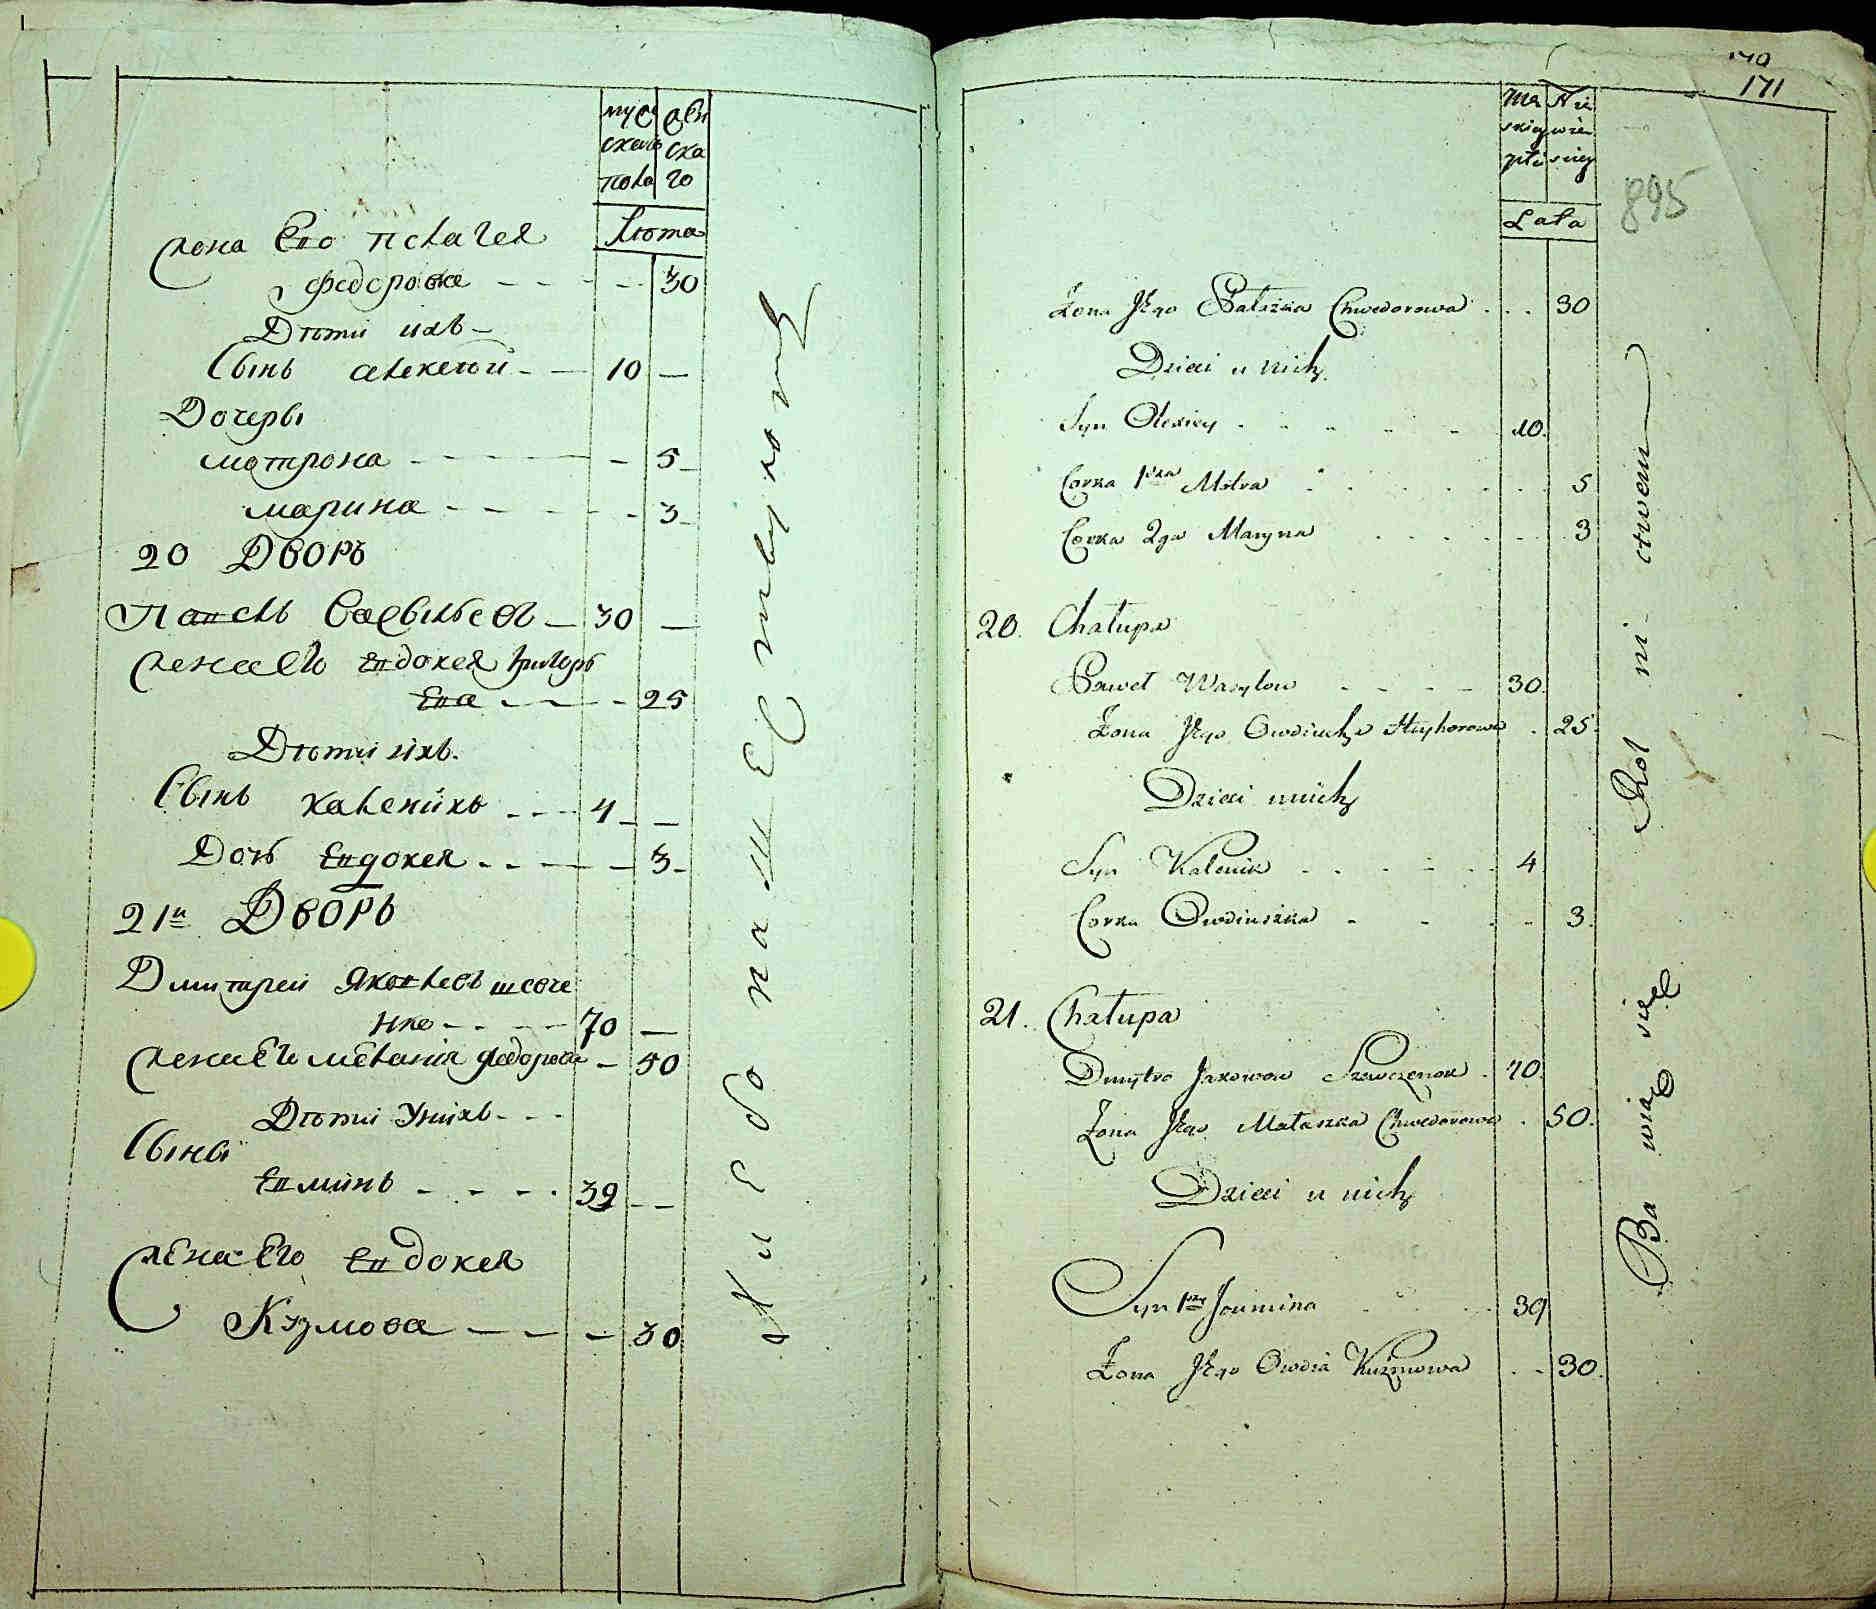 муже
скаго
пола
жен
ска
го
Лѣта
Жена Его Пелагея
Федорова - - - - - 30
Дѣти ихъ -
Сынъ алексѣй - - 10 -
Дочеры
матрона - - - - 5 -
марина - - - - 3 -
20 Дворъ
Павелъ Васыльевъ - 30 -
жена Его Евдокея Григорь
Ева - - - 25
Дѣти ихъ.
Сынъ каленикъ - - - 4 - -
Дочь Евдокея - - - - 3 -
21й Дворъ
Дмитрей Яковлевъ шевче
нко - - - - 70 -
жена Его мелания федорова - 50
Дѣти Унихъ - - -
Сыны
Еаминъ - - - . 39 - -
жена Его Евдокея
Кузмова - - - 30
Хлебопашествуютъ
170
171
895
Mę
skiey
płci
Nie
wie
sciey
Lata
Żona Jego Pałażka Chwedorowa . . . 30
Dzieci u nich
Syn Olexiey - - - - - 10.
Corka 1sza Motra . . . . . . 5
Corka 2ga Maryna . . . . . . 3
20. Chałupa
Paweł Wasylow - - - - 30.
Żona Jego Owdiucha Hryhorowa . 25.
Dzieci u nich
Syn Kalenik . . . . . 4
Corka Owdiuszka - - . - 3.
21. Chałupa
Dmytro Jakowow Szewczenok . 70.
Żona Jego Małaszka Chwedorowa . 50.
Dzieci u nich
Syn 1szy Joumina . . . 39
Żona Jego Owdia Kuźmowa . - 30.
Bawią się Rolnictwem